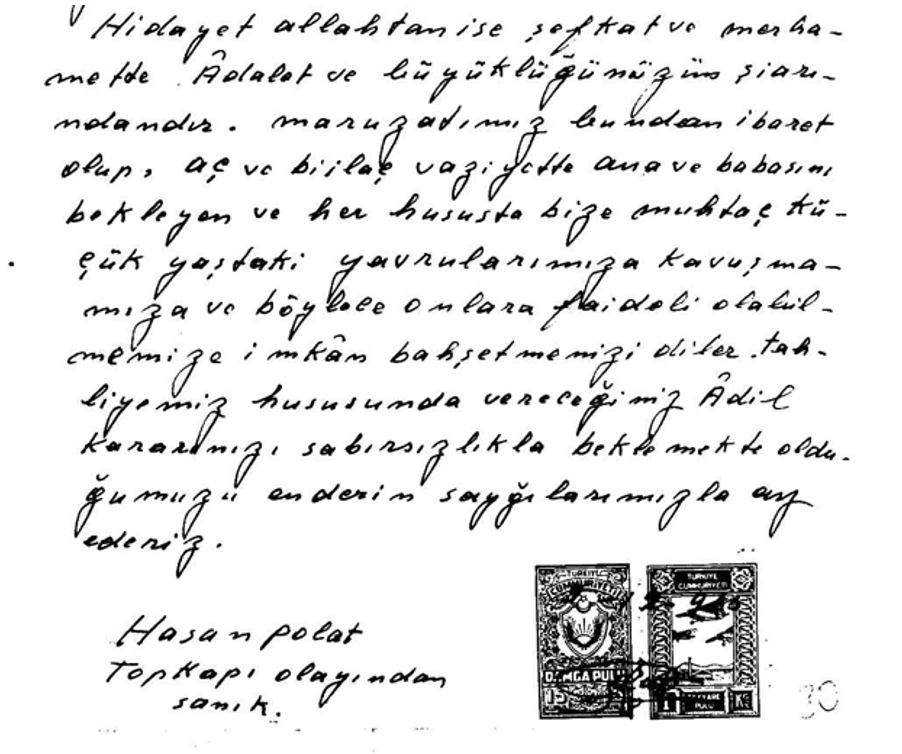 Hidayet allahtan ise şefkat ve merha-
mette Âdalet ve büyüklüğünüzün şiarı-
ndandır. maruzatımız bundan ibaret
olup, aç ve biilaç vaziyette ana ve babasını
bekleyen ve her hususta bize muhtaç kü-
çük yaştaki yavrularımıza kavuşma-
mıza ve böylece onlara faideli olabil-
memize imkân bahşetmenizi diler. tah-
liyemiz hususunda vereceğiniz Âdil
kararınızı sabırsızlıkla beklemekte oldu-
ğumuzu en derin saygılarımızla arz
ederiz.
Hasan polat
Topkapı olayından
sanık.
TÜRKİYE
CUMHURİYETİ
DAMGA PULU
15
TÜRKİYE
CUMHURİYETİ
1
TAYYARE
PULU
KŞ
30